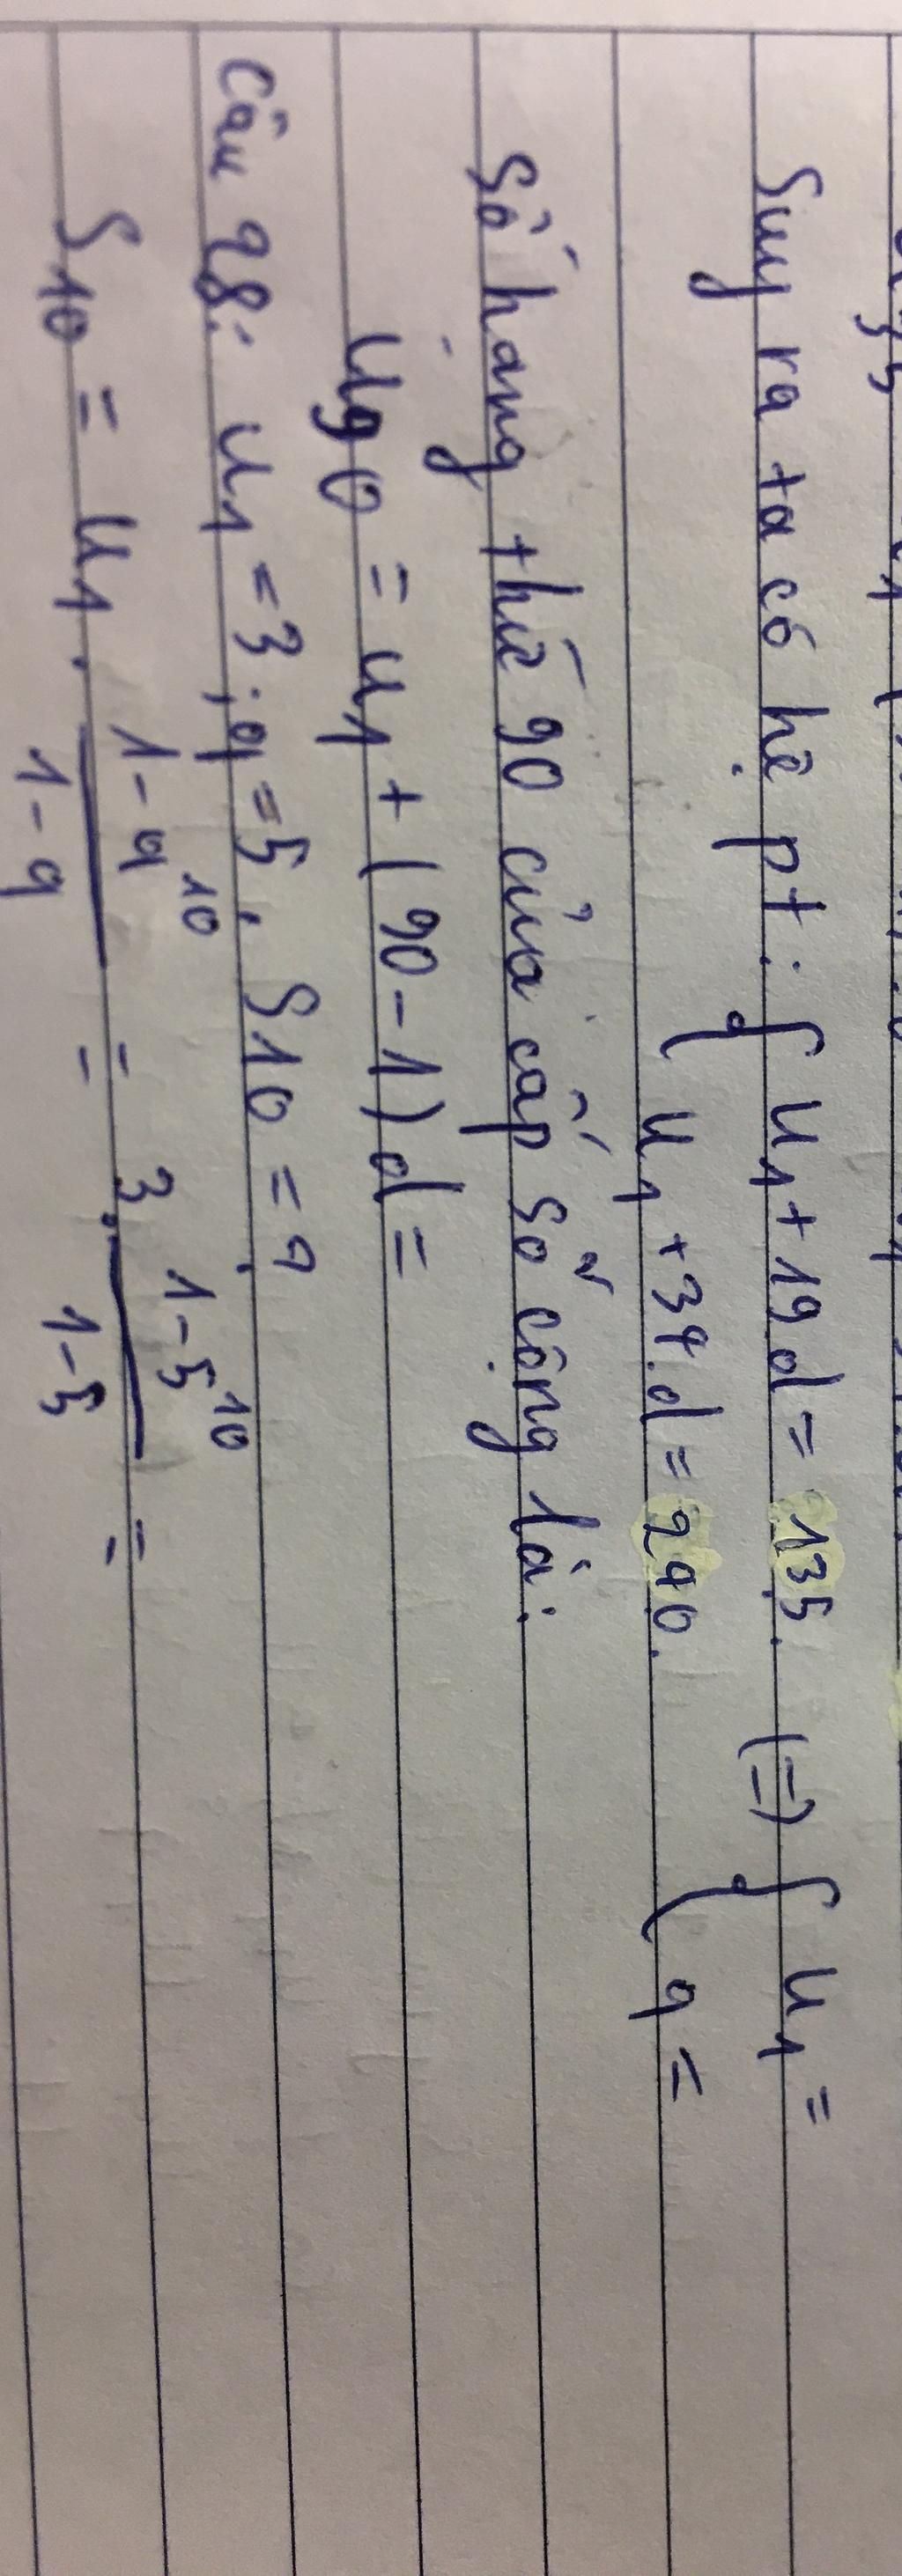 Suy ra ta có hệ pt: { u1 + 19d = 135. (=) { u1 =
u1 + 39.d = 240. q =
Số hạng thứ 90 của cấp số cộng là:
u90 = u1 + (90-1)d =
Câu 28: u1 = 3; q = 5. S10 = ?
S10 = u1. (1-q^10)/(1-q) = 3. (1-5^10)/(1-5) =